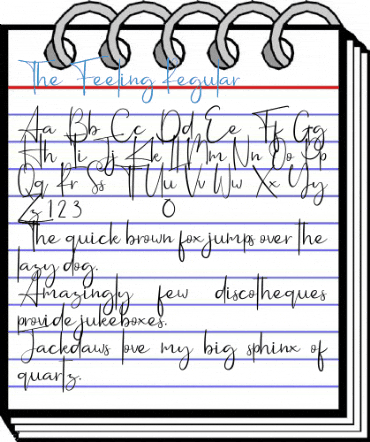 The Feeling Regular
Aa Bb Cc Dd Ee Ff Gg
Hh Ii Jj Kk Ll Mm Nn Oo Pp
Qq Rr Ss Tt Uu Vv Ww Xx Yy
Zz 1 2 3 0
The quick brown fox jumps over the
lazy dog.
Amazingly few discotheques
provide jukeboxes.
Jackdaws love my big sphinx of
quartz.